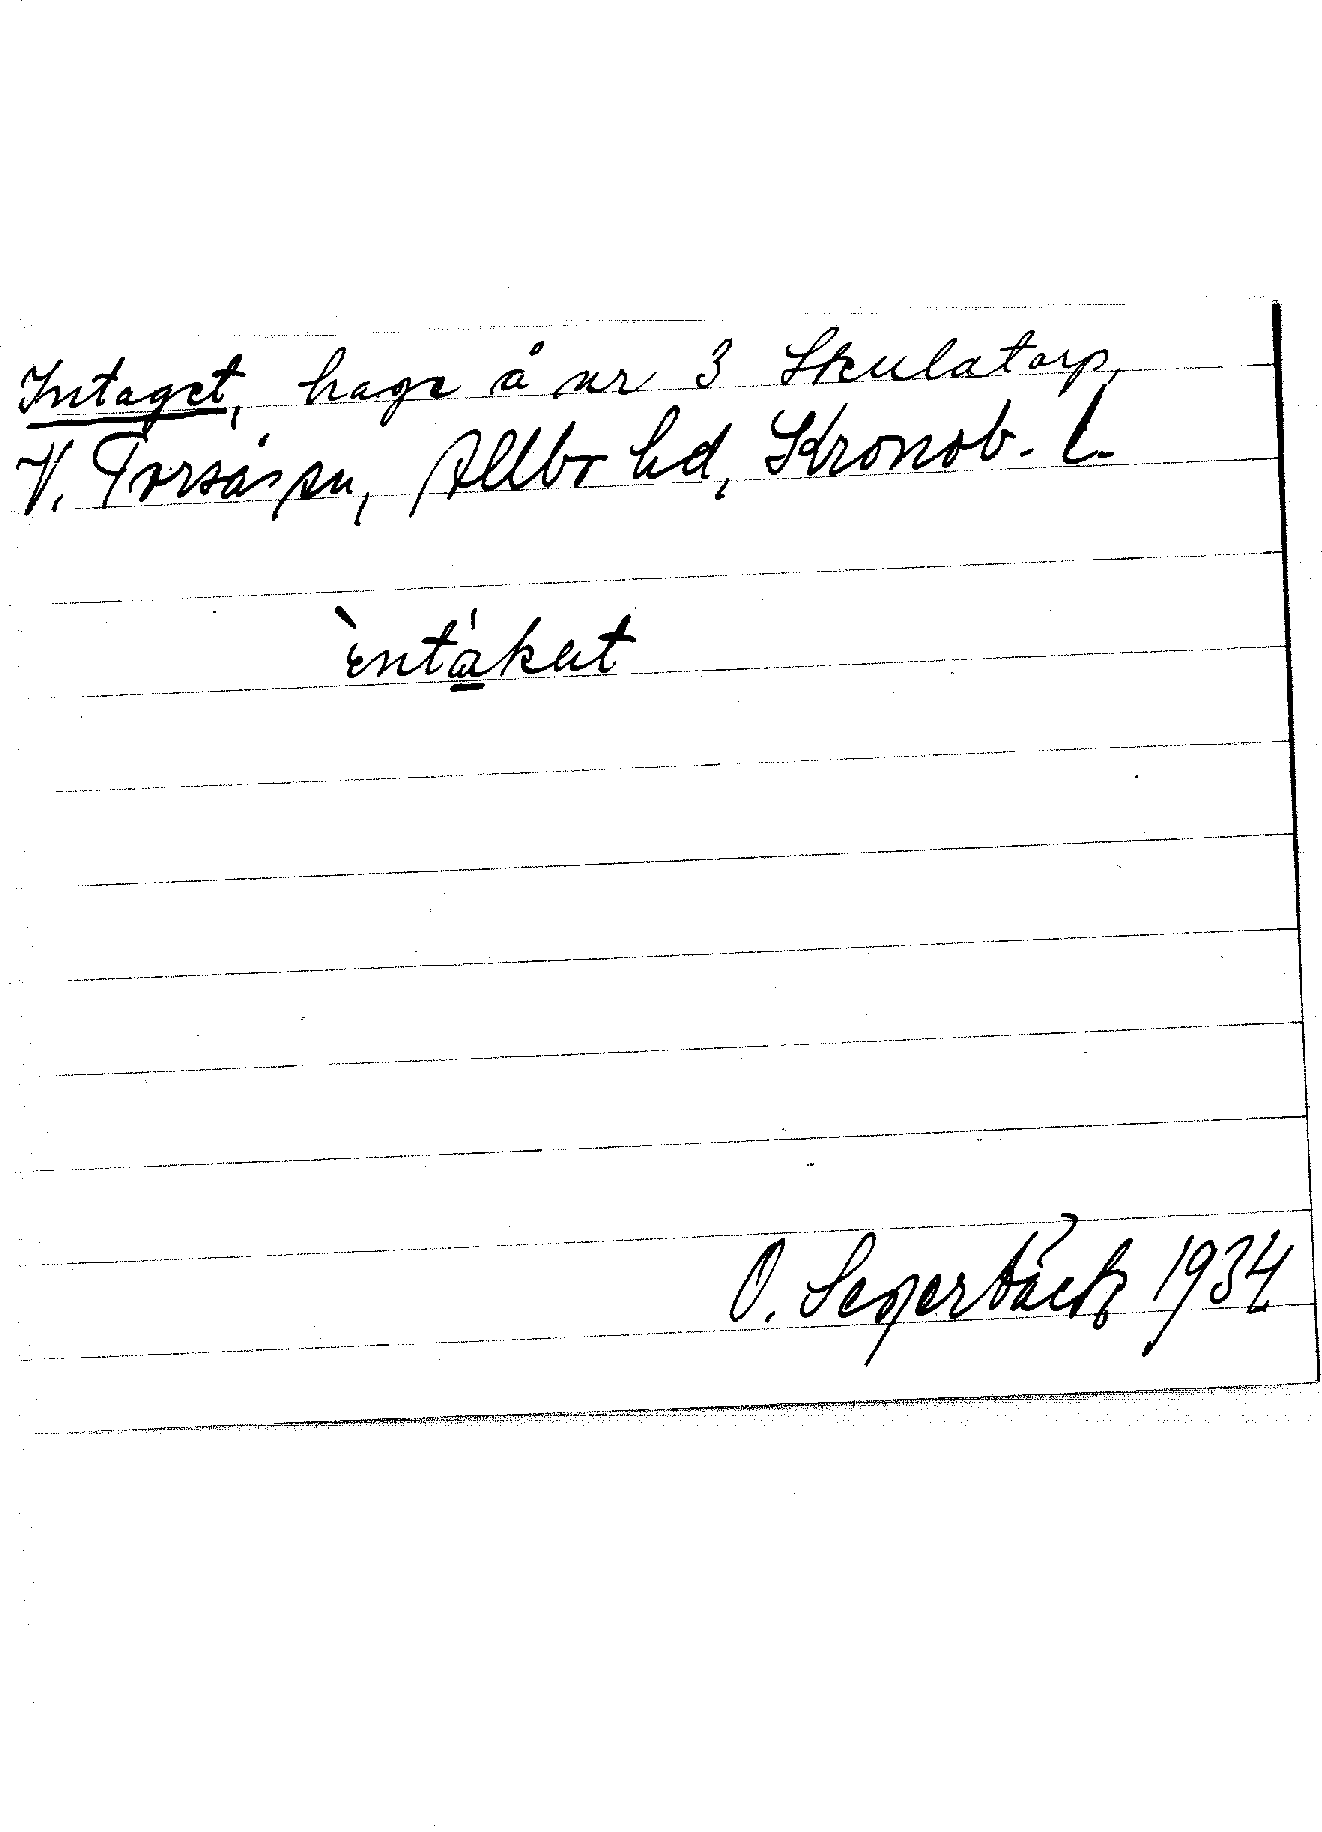 Intaget, hage å nr 3 Skulatorp,
V. Torsås sn, Allbo hd, Kronob. l.
èntákut
O. Segerbäck 1934